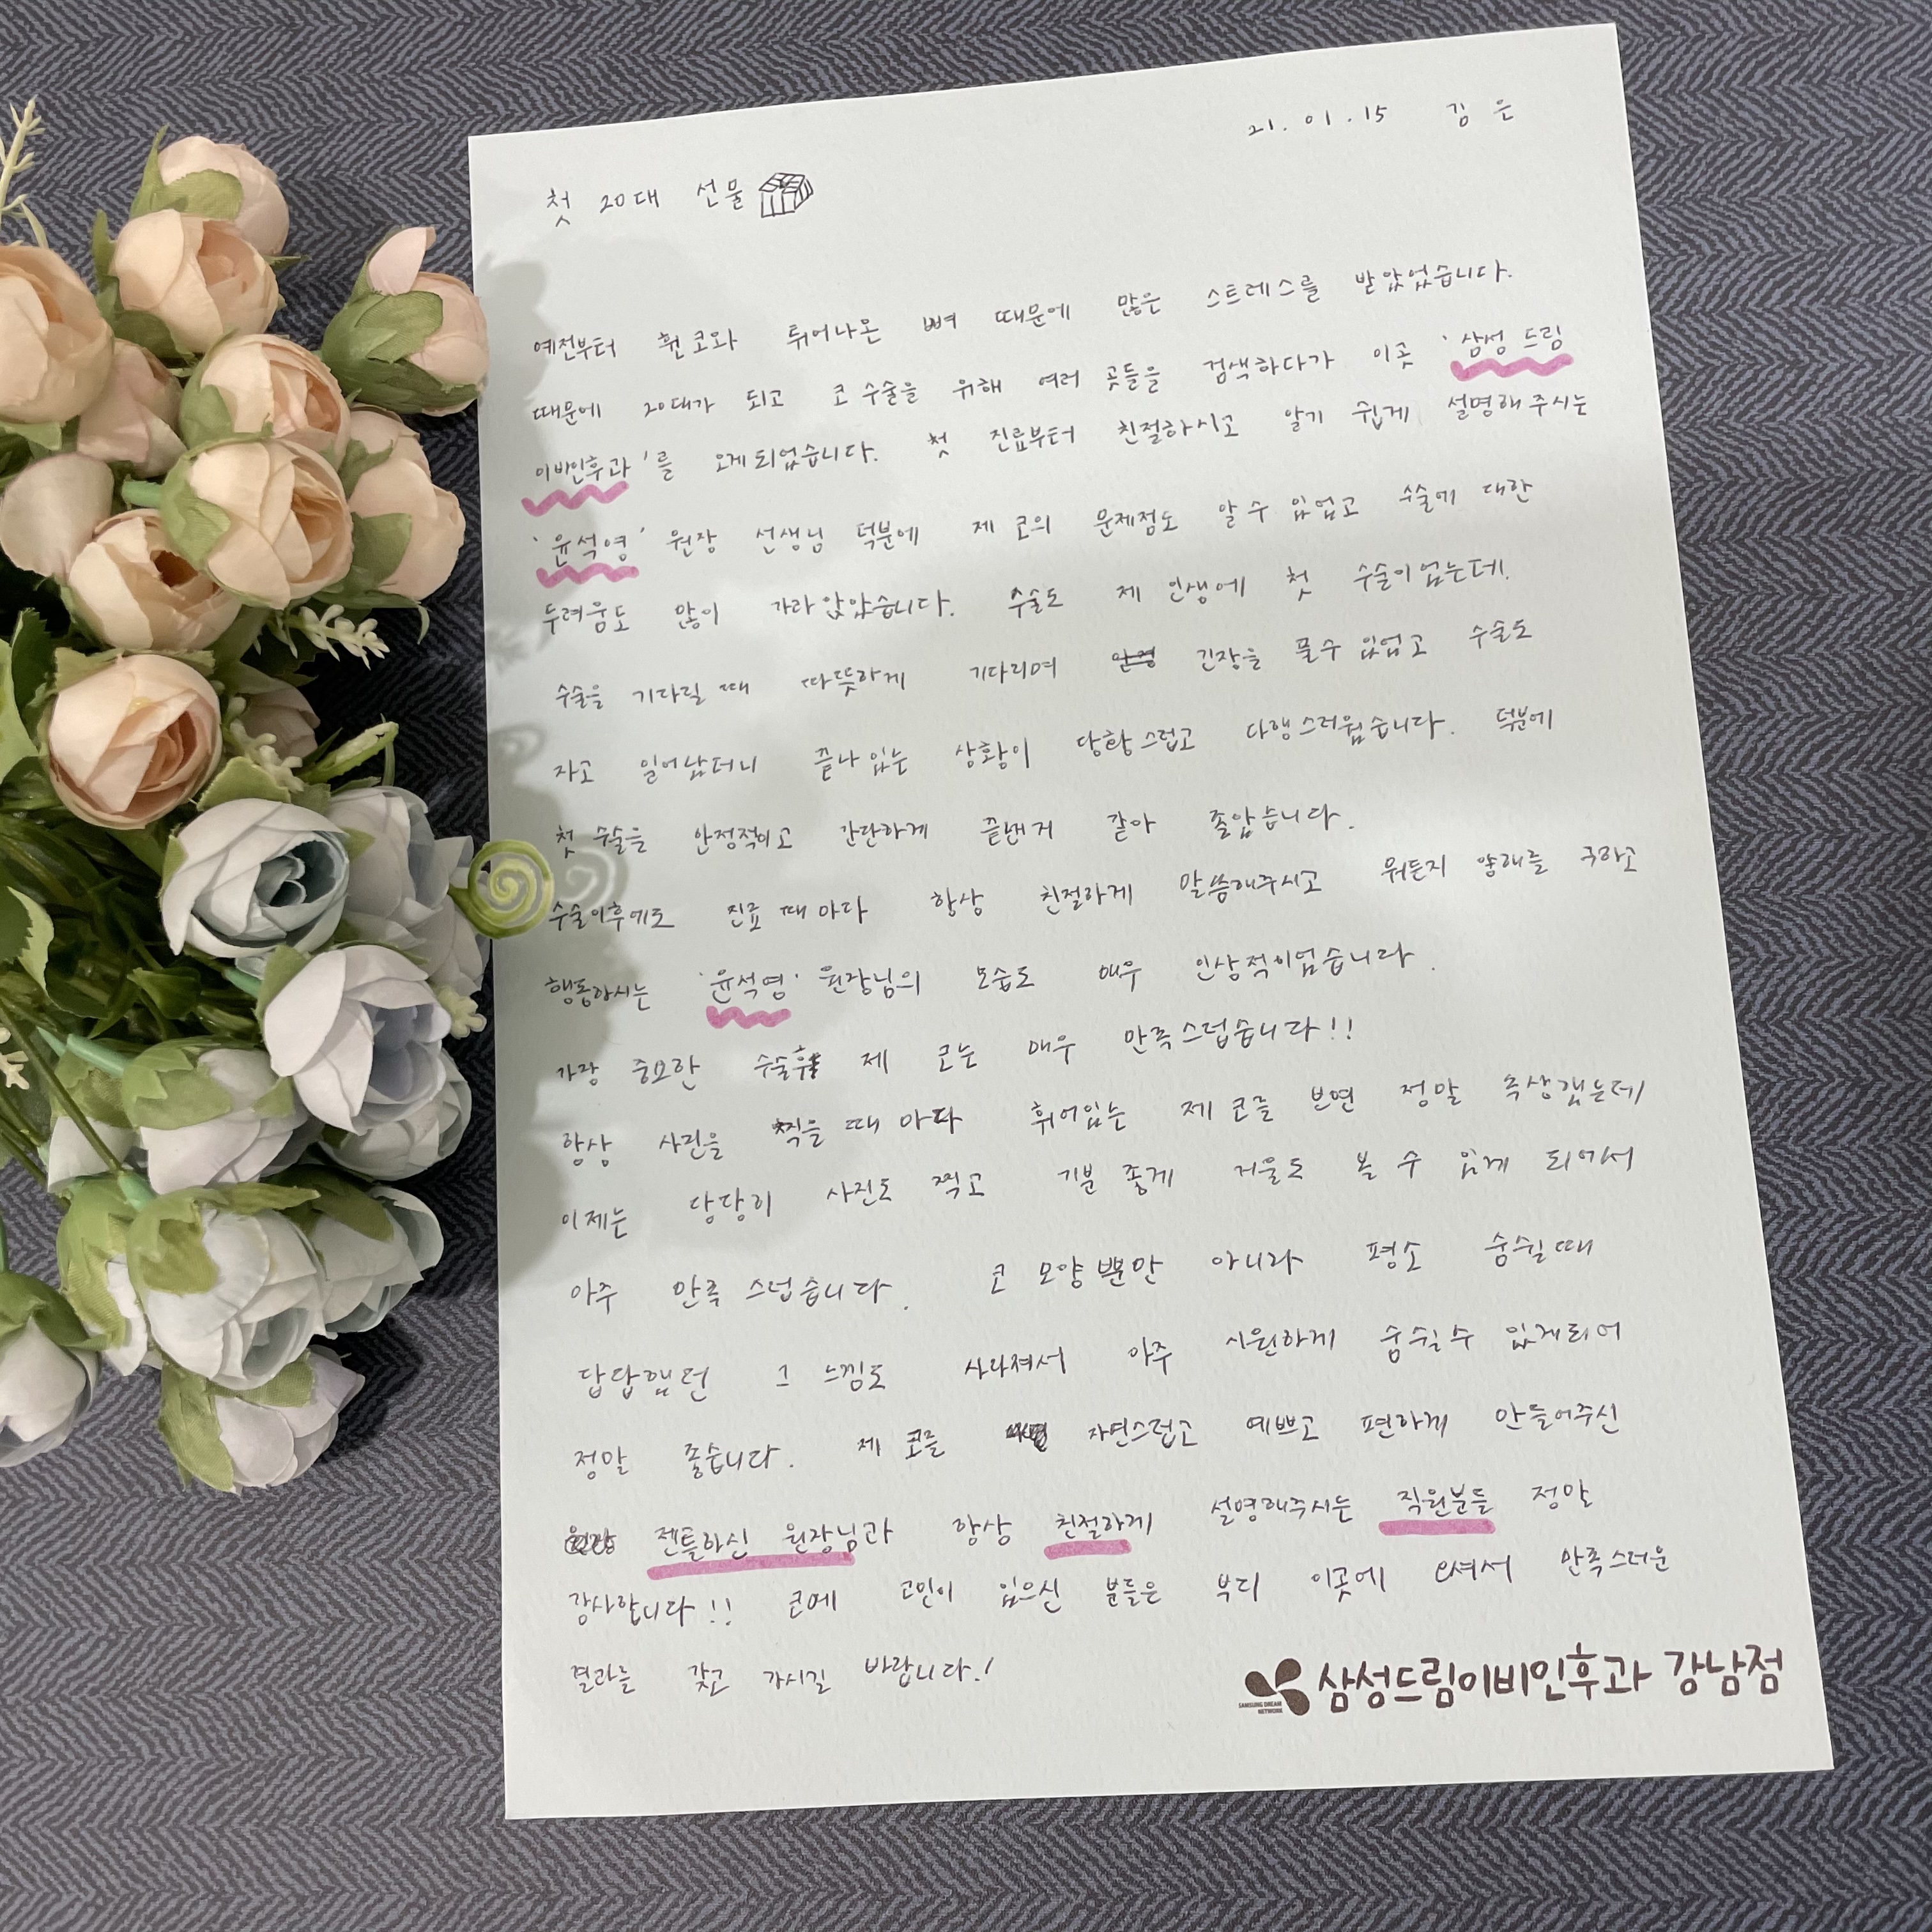 21. 01. 15 김 은
첫 20대 선물
예전부터 휜 코와 튀어나온 뼈 때문에 많은 스트레스를 받았었습니다.
때문에 20대가 되고 코 수술을 위해 여러 곳들을 검색하다가 이곳 '삼성 드림
이비인후과'를 오게되었습니다. 첫 진료부터 친절하시고 알기 쉽게 설명해 주시는
'윤석영' 원장 선생님 덕분에 제 코의 문제점도 알 수 있었고 수술에 대한
두려움도 많이 가라앉았습니다. 수술도 제 인생에 첫 수술이었는데.
수술을 기다릴 때 따뜻하게 기다리며 긴장을 풀수 있었고 수술도
자고 일어났더니 끝나있는 상황이 당황스럽고 다행스러웠습니다. 덕분에
첫 수술을 안정적이고 간단하게 끝낸거 같아 좋았습니다.
수술이후에도 진료 때 마다 항상 친절하게 말씀해주시고 뭐든지 양해를 구하고
행동하시는 '윤석영' 원장님의 모습도 매우 인상적이었습니다.
가장 중요한 수술후 제 코는 매우 만족스럽습니다!!
항상 사진을 찍을 때 마다 휘어있는 제 코를 보면 정말 속상했는데
이제는 당당히 사진도 찍고 기분 좋게 거울도 볼 수 있게 되어서
아주 만족 스럽습니다. 코 모양뿐만 아니라 평소 숨쉴때
답답했던 그 느낌도 사라져서 아주 시원하게 숨쉴수 있게되어
정말 좋습니다. 제 코를 자연스럽고 예쁘고 편하게 만들어주신
젠틀하신 원장님과 항상 친절하게 설명해주시는 직원분들 정말
감사합니다!! 코에 고민이 있으신 분들은 부디 이곳에 오셔서 만족스러운
결과를 갖고 가시길 바랍니다.!
SAMSUNG DREAM NETWORK 삼성드림이비인후과 강남점